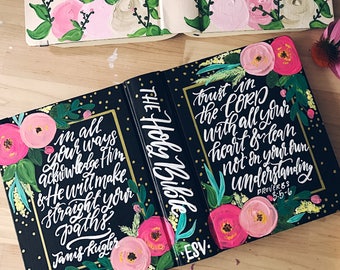 in all
your ways
acknowledge Him
& He will make
straight your
paths
THE Holy Bible
ESV
trust in
the LORD
with all your
heart & lean
not on your own
understanding
PROVERBS
3:5-6